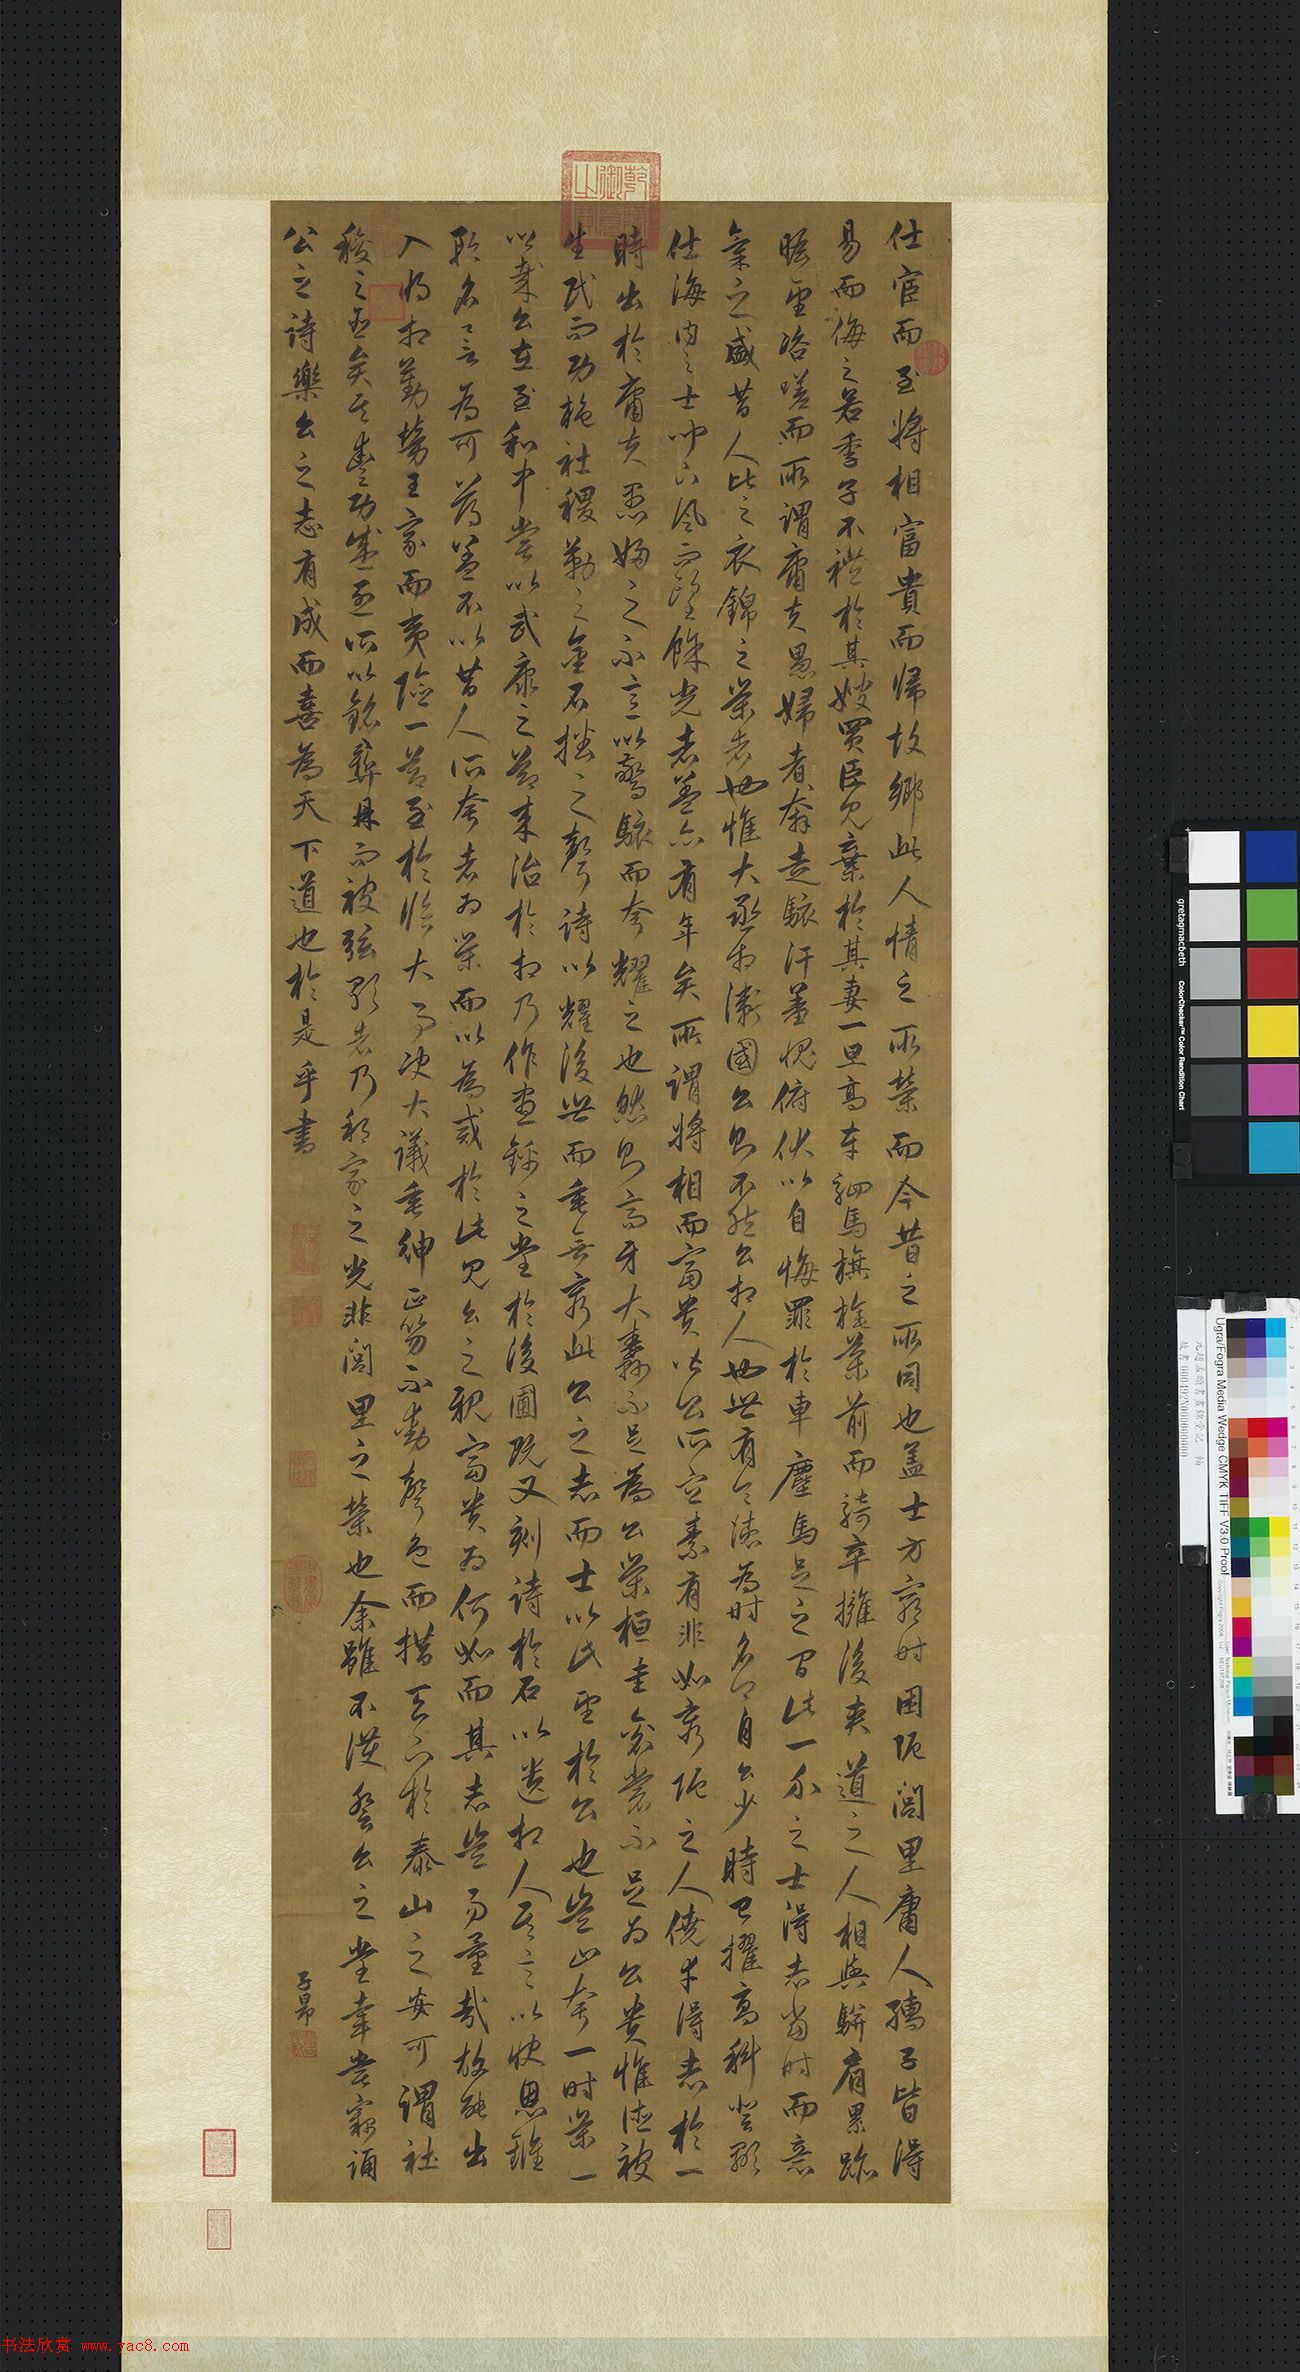 仕宦而至將相富貴而歸故鄉此人情之所榮而今昔之所同也蓋士方窮時困阨閭里庸人孺子皆得
易而侮之若季子不禮於其嫂買臣見棄於其妻一旦高車駟馬旗旄導前而騎卒擁後夾道之人相與駢肩累跡
瞻望咨嗟而所謂庸夫愚婦者奔走駭汗羞愧俯伏以自悔罪於車塵馬足之間此一介之士得志當時而意
氣之盛昔人比之衣錦之榮者也惟大丞相衛國公則不然公相人也世有令德為時名卿自公少時已擢高科登顯
仕海內之士聞下風而望餘光者蓋亦有年矣所謂將相而富貴皆公所宜素有非如窮阨之人僥幸得志於一
時出於庸夫愚婦之不意以驚駭而夸耀之也然則高牙大纛不足為公榮桓圭袞裳不足為公貴惟德被
生民而功施社稷勒之金石播之聲詩以耀後世而垂無窮此公之志而士以此望於公也豈止夸一時榮一
鄉哉公在至和中嘗以武康之節來治於相乃作晝錦之堂於後圃既又刻詩於石以遺相人其言以快恩讎
矜名譽為可薄蓋不以昔人所夸者為榮而以為戒於此見公之視富貴為何如而其志豈易量哉故能出
入將相勤勞王家而夷險一節至於臨大事決大議垂紳正笏不動聲色而措天下於泰山之安可謂社
稷之臣矣其豐功盛烈所以銘彝鼎而被弦歌者乃邦家之光非閭里之榮也余雖不獲登公之堂幸嘗竊誦
公之詩樂公之志有成而喜為天下道也於是乎書
子昂
gretagmacbeth
ColorChecker™ Color Rendition Chart
Ugra/Fogra Media Wedge CMYK TIFF V3.0 Proof
元趙孟頫書晝錦堂記 軸
书法欣赏 www.yac8.com